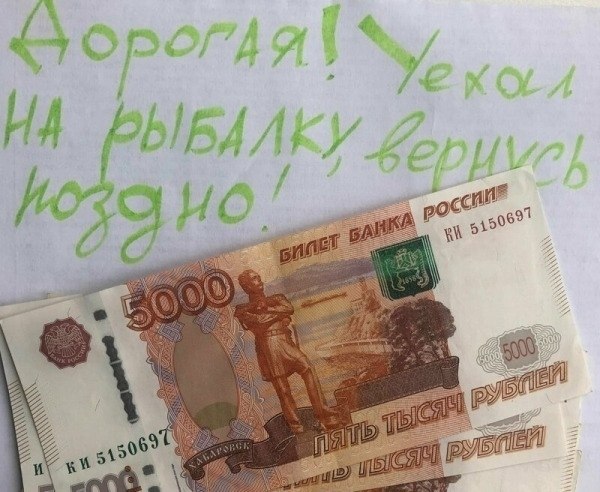 Дорогая! Уехал
на рыбалку, вернусь
поздно!
БИЛЕТ БАНКА РОССИИ
КИ 5150697
5000
5000
ПЯТЬ ТЫСЯЧ РУБЛЕЙ
ХАБАРОВСК
И КИ 5150697
ПЯТЬ ТЫСЯЧ РУБЛЕЙ
5000